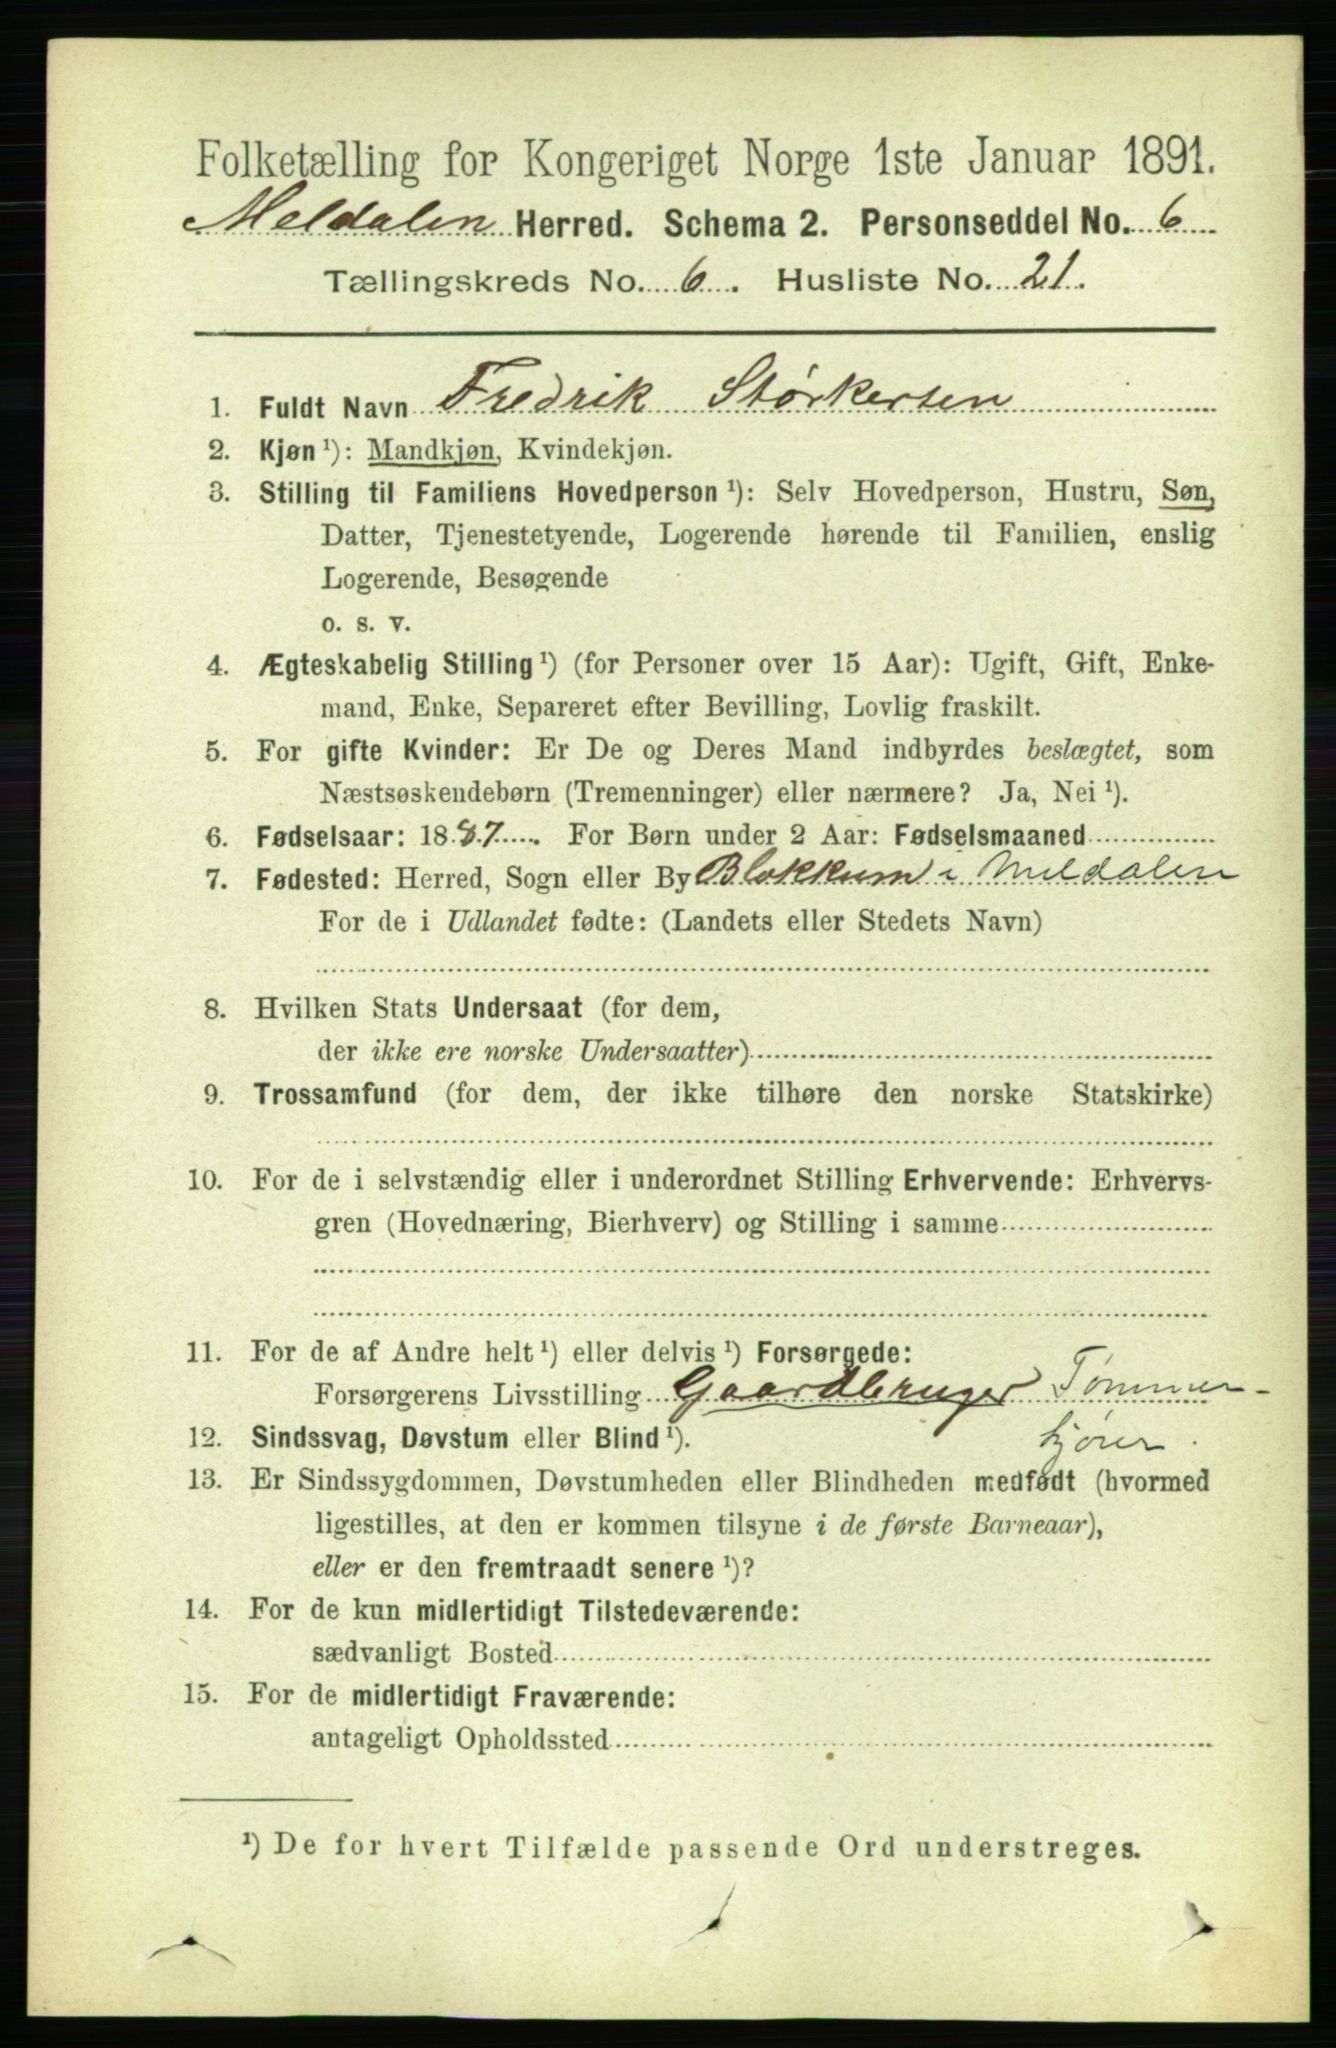 Folketælling for Kongeriget Norge 1ste Januar 1891.
Meldalen Herred. Schema 2. Personseddel No. 6
Tællingskreds No. 6. Husliste No. 21.
1. Fuldt Navn Fredrik Størkersen
2. Kjøn ¹): Mandkjøn, Kvindekjøn.
3. Stilling til Familiens Hovedperson ¹): Selv Hovedperson, Hustru, Søn,
Datter, Tjenestetyende, Logerende hørende til Familien, enslig
Logerende, Besøgende
o. s. v.
4. Ægteskabelig Stilling ¹) (for Personer over 15 Aar): Ugift, Gift, Enke-
mand, Enke, Separeret efter Bevilling, Lovlig fraskilt.
5. For gifte Kvinder: Er De og Deres Mand indbyrdes beslægtet, som
Næstsøskendebørn (Tremenninger) eller nærmere? Ja, Nei ¹).
6. Fødselsaar: 1887. For Børn under 2 Aar: Fødselsmaaned
7. Fødested: Herred, Sogn eller By Blokkum i Meldalen
For de i Udlandet fødte: (Landets eller Stedets Navn)
8. Hvilken Stats Undersaat (for dem,
der ikke ere norske Undersaatter)
9. Trossamfund (for dem, der ikke tilhøre den norske Statskirke)
10. For de i selvstændig eller i underordnet Stilling Erhvervende: Erhvervs-
gren (Hovednæring, Bierhverv) og Stilling i samme
11. For de af Andre helt ¹) eller delvis ¹) Forsørgede:
Forsørgerens Livsstilling Gaardbruger Tømmer-
kjører.
12. Sindssvag, Døvstum eller Blind ¹).
13. Er Sindssygdommen, Døvstumheden eller Blindheden medfødt (hvormed
ligestilles, at den er kommen tilsyne i de første Barneaar),
eller er den fremtraadt senere ¹)?
14. For de kun midlertidigt Tilstedeværende:
sædvanligt Bosted
15. For de midlertidigt Fraværende:
antageligt Opholdssted
¹) De for hvert Tilfælde passende Ord understreges.